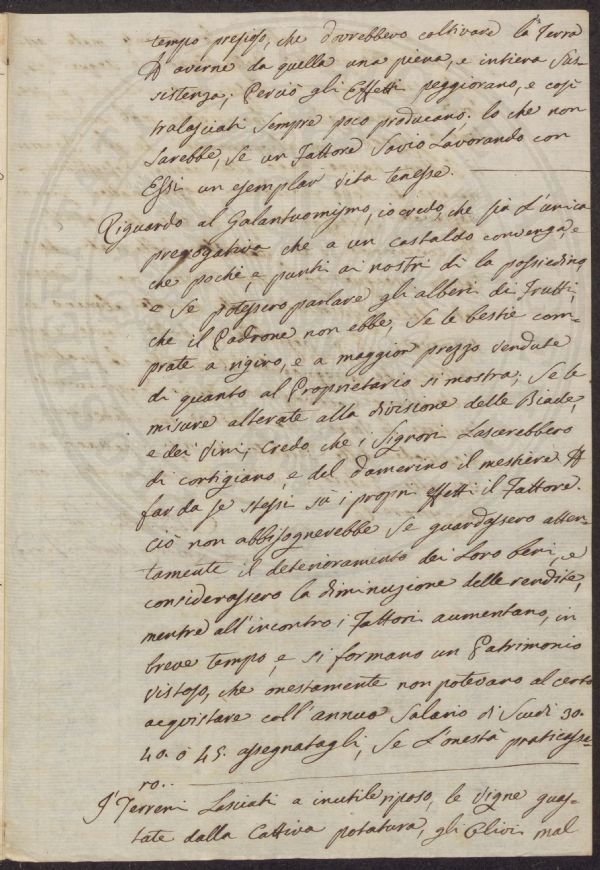 tempo prefisso, che dovrebbero coltivare la Terra
averne da quella una piena, e intiera Sus-
sistenza; Perciò gli Effetti peggiorano, e così
tralasciati Sempre poco producano. lo che non
Sarebbe, Se un Fattore Savio Lavorando con
Essi un esemplar vita tenesse.
Riguardo al Galantuomismo, io credo, che sia L'unica
prerogativa che a un castaldo convenga, e
che pochi, e punti ai nostri dì la possiedino
e Se potessero parlare gli alberi di Frutti,
che il Padrone non ebbe, Se le bestie com-
prate a rigiro, e a maggior prezzo vendute
di quanto al Proprietario si mostra; Se le
misure alterate alla divisione delle Biade,
e dei Vini; Credo che i Signori Lascerebbero
di cortigiano, e del damerino il mestiere
far da se stessi su i propri effetti il Fattore.
Ciò non abbisognerebbe Se guardassero atten-
tamente il deterioramento dei Loro beni, e
considerassero la diminuzione delle rendite,
mentre all'incontro i Fattori aumentano, in
breve tempo, e si formano un Patrimonio
vistoso, che onestamente non potevano al certo
acquistare coll'annuo Salario di Scudi 30.
40. o 45. assegnatagli, Se L'onestà praticasse-
ro.
I Terreni Lasciati a inutile riposo, le Vigne guas-
tate dalla Cattiva potatura, gli Olivi mal